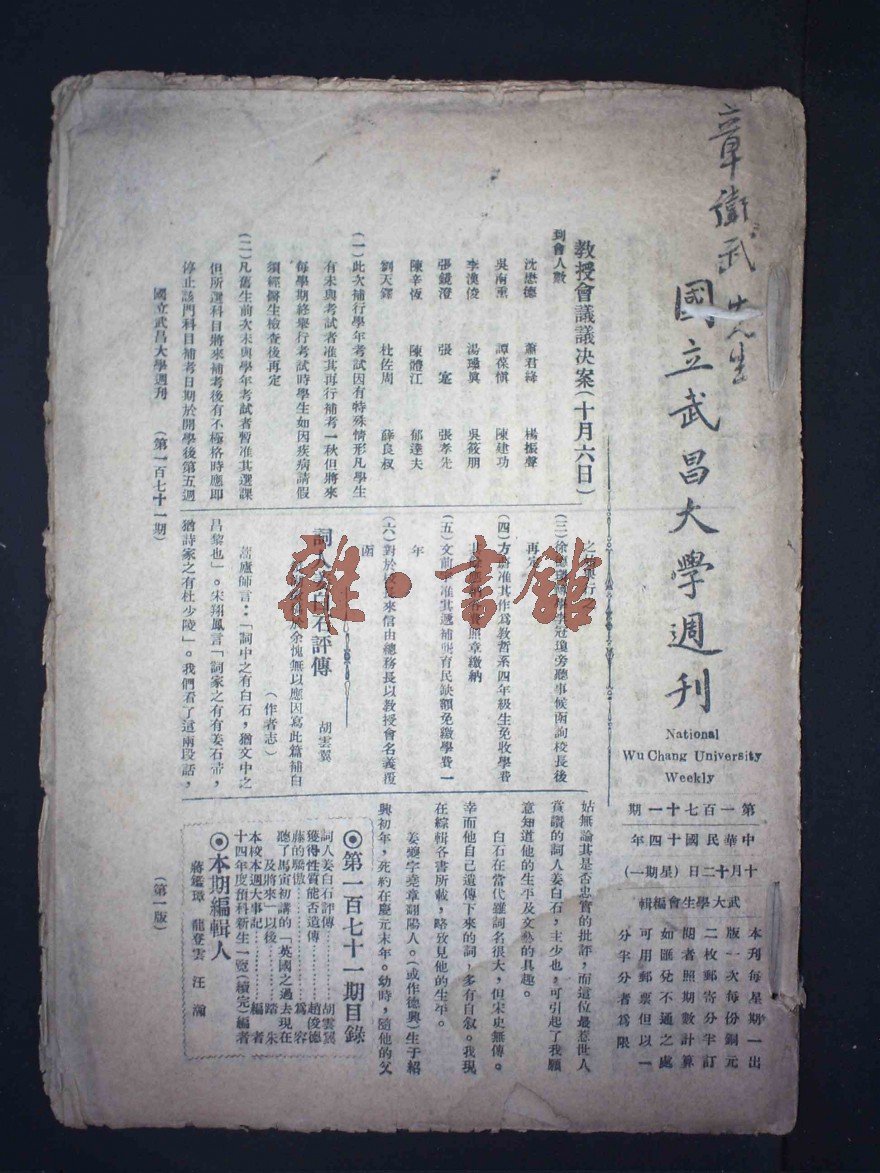 章衛武先生
國立武昌大學週刊
National
Wu Chang University
Weekly
第一百七十一期
中華民國十四年
十月十二日(星期一)
武大學生會編輯
本刊每星期一出
版一次每份銅元
二枚郵寄分字訂
閱者照期數計算
如匯兌不通之處
可用郵票但以一
分半分者為限
教授會議議決案(十月六日)
到會人數
沈懋德 蕭君絳 楊振聲
吳南薰 譚葆愼 陳建功
李漢俊 湯璪真 吳筱朋
張鏡澄 張 寔 張孝先
陳辛恆 陳體江 郁達夫
劉天鐸 杜佐周 薛良叔
(一)此次補行學年考試因有特殊情形凡學生
有未與考試者准其再行補考一秋但將來
每學期終舉行考試時學生如因疾病請假
須經醫生檢查後再定
(二)凡舊生前次未與學年考試者暫准其選課
但所選科目將來補考後有不極格時應即
停止該門科目補考日期於開學後第五週
之 行
(三)徐 冠瓊旁聽事候函詢校長後
再定
(四)方 准其作爲敎哲系四年級生免收學費
照章繳納
(五)文前 准其遞補 育民缺額免繳學費一
年
(六)對於 來信由總務長以教授會名義覆
函
詞人姜白石評傳 胡雲翼
於余愧無以應因寫此篇補白
(作者志)
蒿廬師言:「詞中之有白石,猶文中之
昌黎也」。宋翔鳳言「詞家之有有姜石帚,
猶詩家之有杜少陵」。我們看了這兩段話,
姑無論其是否忠實的批評,而這位最惹世人
賞讚的詞人姜白石,至少也,可引起了我願
意知道他的生平及文藝的具趣。
白石在當代雖詞名很大,但宋史無傳。
幸而他自己遺傳下來的詞,多有自叙。我現
在綜輯各書所載,略致見他的生平。
姜夔字堯章鄱陽人。(或作德興)生于紹
興初年,死約在慶元末年。幼時,隨他的父
◉第一百七十一期目錄
詞人姜白石評傳…………胡雲翼
獲得性質能否遺傳………趙俊德
藤的驕傲…………………爲 容
聽了馬寅初講的「英國之過去現在
及將來」以後…………踏 朱
本校本週大事記…………編 者
十四年度預科新生一覽(續完)編者
◉本期編輯人
蔣鑑璋 龍登雲 汪 瀚
國立武昌大學週刊 (第一百七十一期) (第一版)
雜·書館